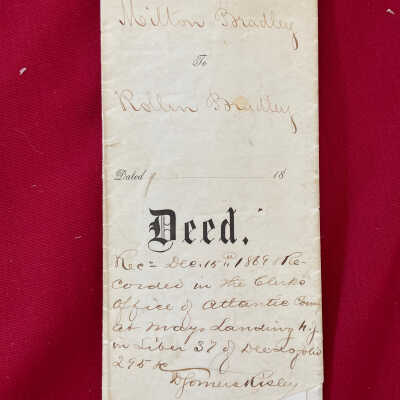 Milton Bradley
To
Rollin Bradley
Dated 18
Deed.
Rec= Dec. 15th 1869 & Re-
corded in the Clerks
Office of Atlantic Coun
at Mays Landing N.J.
in Liber 37 of Deeds folio
295 &c
D Somers Risley